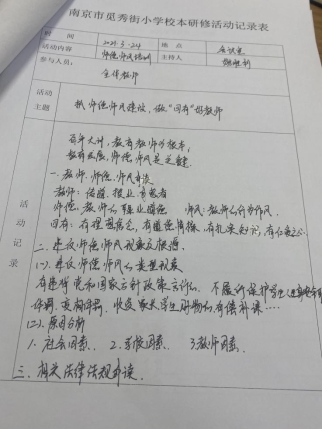 南京市觅秀街小学校本研修活动记录表
时 间 2021.3.24 地 点 会议室
活动内容 师德师风培训 主持人
参与人员： 全体教师
活动主题 抓师德师风建设，做“四有”好教师
活动记录
百年大计，教育为本，教师为本，
教育发展，师德师风是关键。
一、教师、师德、师风
教师：传道、授业、解惑者
师德：教师的职业道德 师风：教师的行为作风
四有：有理想信念，有道德情操，有扎实知识，有仁爱之心
二、违反师德师风现象及根源
(一)、违反师德师风的典型现象
有违背党和国家方针政策言行
体罚、变相体罚、收受家长学生财物 有偿补课……
(二)、原因分析
1. 社会因素、 2. 学校因素 3. 教师因素、
三、相关法律法规解读、